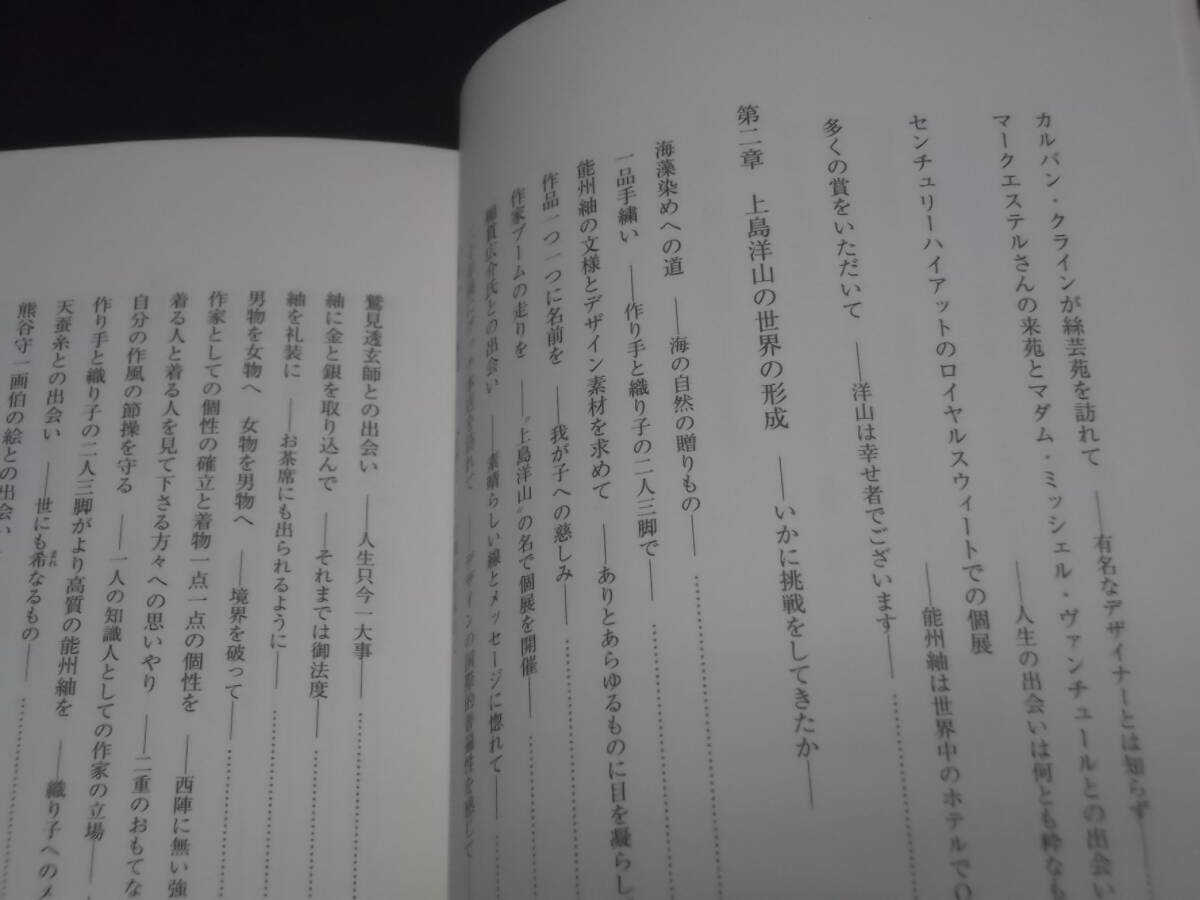 カルバン・クラインが絲芸苑を訪れて ――有名なデザイナーとは知らず――
マークエステルさんの来苑とマダム・ミッシェル・ヴァンチュールとの出会い
――人生の出会いは何とも粋なも
センチュリーハイアットのロイヤルスウィートでの個展
――能州紬は世界中のホテルでO
多くの賞をいただいて ――洋山は幸せ者でございます――
第二章 上島洋山の世界の形成 ――いかに挑戦をしてきたか――
海藻染めへの道 ――海の自然の贈りもの――
一品手繍い ――作り手と織り子の二人三脚で――
能州紬の文様とデザイン素材を求めて ――ありとあらゆるものに目を凝らし
作品一つ一つに名前を ――我が子への慈しみ――
作家ブームの走りを ――〝上島洋山〟の名で個展を開催――
綿貫広介氏との出会い ――素晴らしい線とメッセージに惚れて――
を訪れて ――デザインの国際的普遍性を感じて
鷲見透玄師との出会い ――人生只今一大事――
紬に金と銀を取り込んで ――それまでは御法度――
紬を礼装に ――お茶席にも出られるように――
男物を女物へ 女物を男物へ ――境界を破って――
作家としての個性の確立と着物一点一点の個性を ――西陣に無い強
着る人と着る人を見て下さる方々への思いやり ――二重のおもてな
自分の作風の節操を守る ――一人の知識人としての作家の立場――
作り手と織り子の二人三脚がより高質の能州紬を ――織り子へのメ
天蚕糸との出会い ――世にも希なるもの――
まれ
熊谷守一画伯の絵との出会い